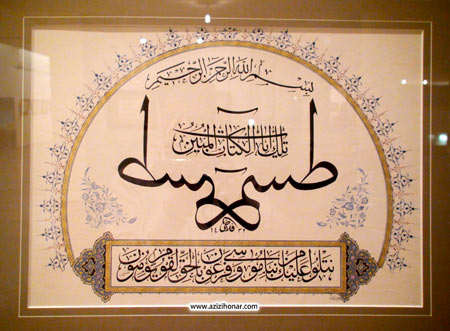 بسم الله الرحمن الرحيم
طسم
تلك آيات الكتاب المبين
نتلوا عليك من نبإ موسى وفرعون بالحق لقوم يؤمنون
www.azizihonar.com